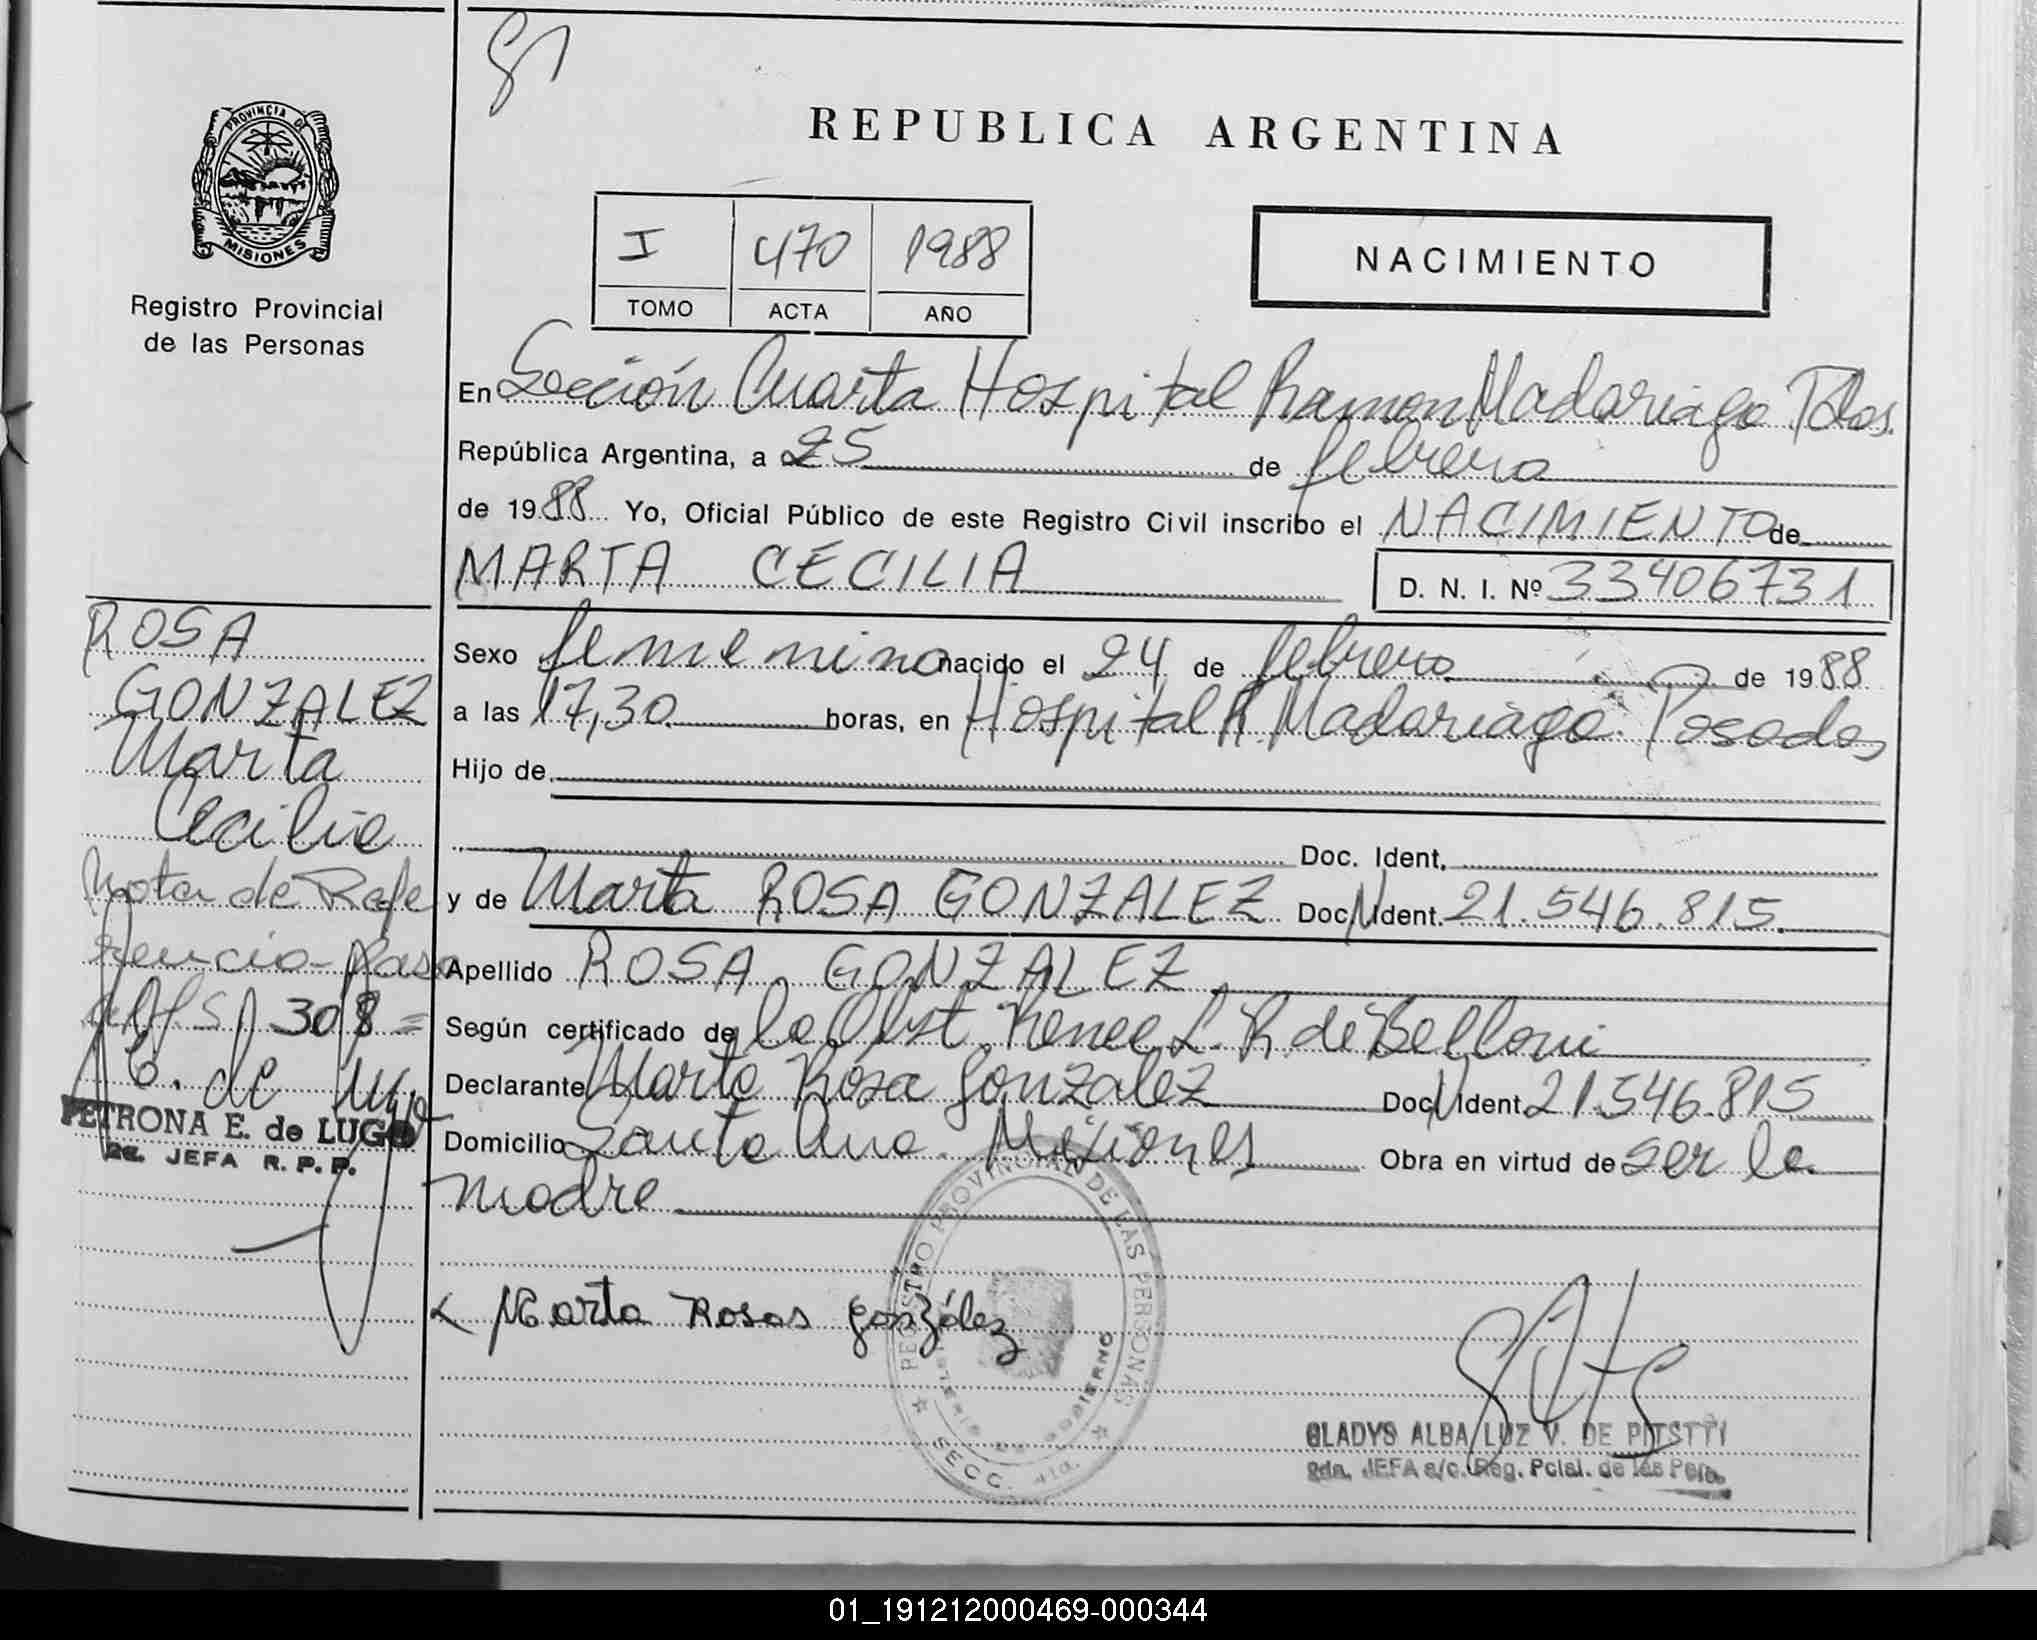 PROVINCIA DE
MISIONES
Registro Provincial
de las Personas
REPUBLICA ARGENTINA
I 470 1988
TOMO ACTA AÑO
NACIMIENTO
En Sección Cuarta Hospital Ramon Madariaga Pdas.
República Argentina, a 25 de febrero
de 1988 Yo, Oficial Público de este Registro Civil inscribo el NACIMIENTO de
MARTA CECILIA D. N. I. Nº 33406731
Sexo femenino nacido el 24 de febrero de 1988
a las 17,30 horas, en Hospital R. Madariaga Posadas
Hijo de
Doc. Ident.
y de Marta ROSA GONZALEZ Doc. N. Ident. 21.546.815.
Apellido ROSA GONZALEZ
Según certificado de la Obst. Renee L. R de Belloni
Declarante Marta Rosa Gonzalez Doc. N. Ident. 21.546.815
Domicilio Santa Ana. Misiones Obra en virtud de ser la
madre
Marta Rosas González
ROSA
GONZALEZ
Marta
Cecilia
Nota de Refe
rencia - Pasa
308 =
PETRONA E. de LUGO
2a. JEFA R. P. P.
REGISTRO PROVINCIAL DE LAS PERSONAS
SECC. 4ta.
GOBIERNO
GLADYS ALBA LUZ V. DE
2da. JEFA a/c. Reg. Pcial. de las Pers.
01_191212000469-000344